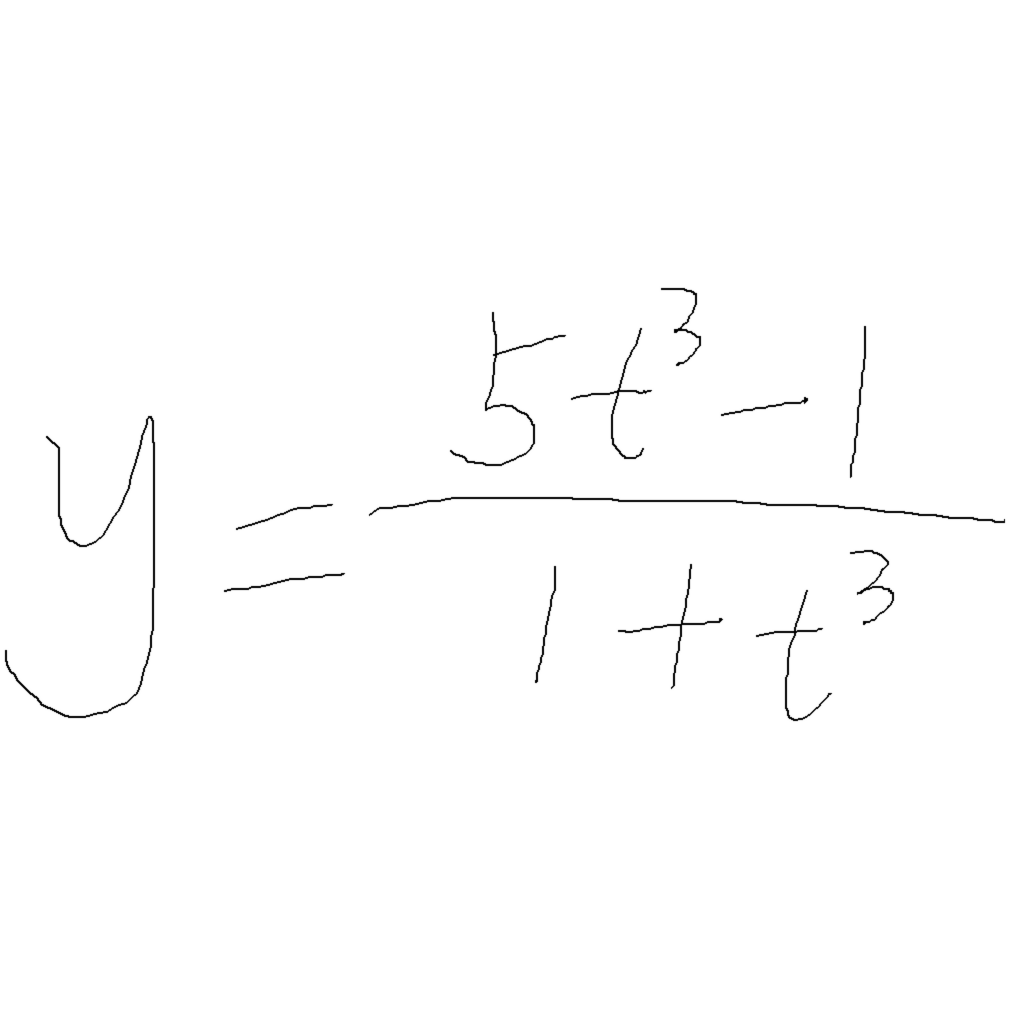 y = \frac{5t^3 - 1}{1 + t^3}